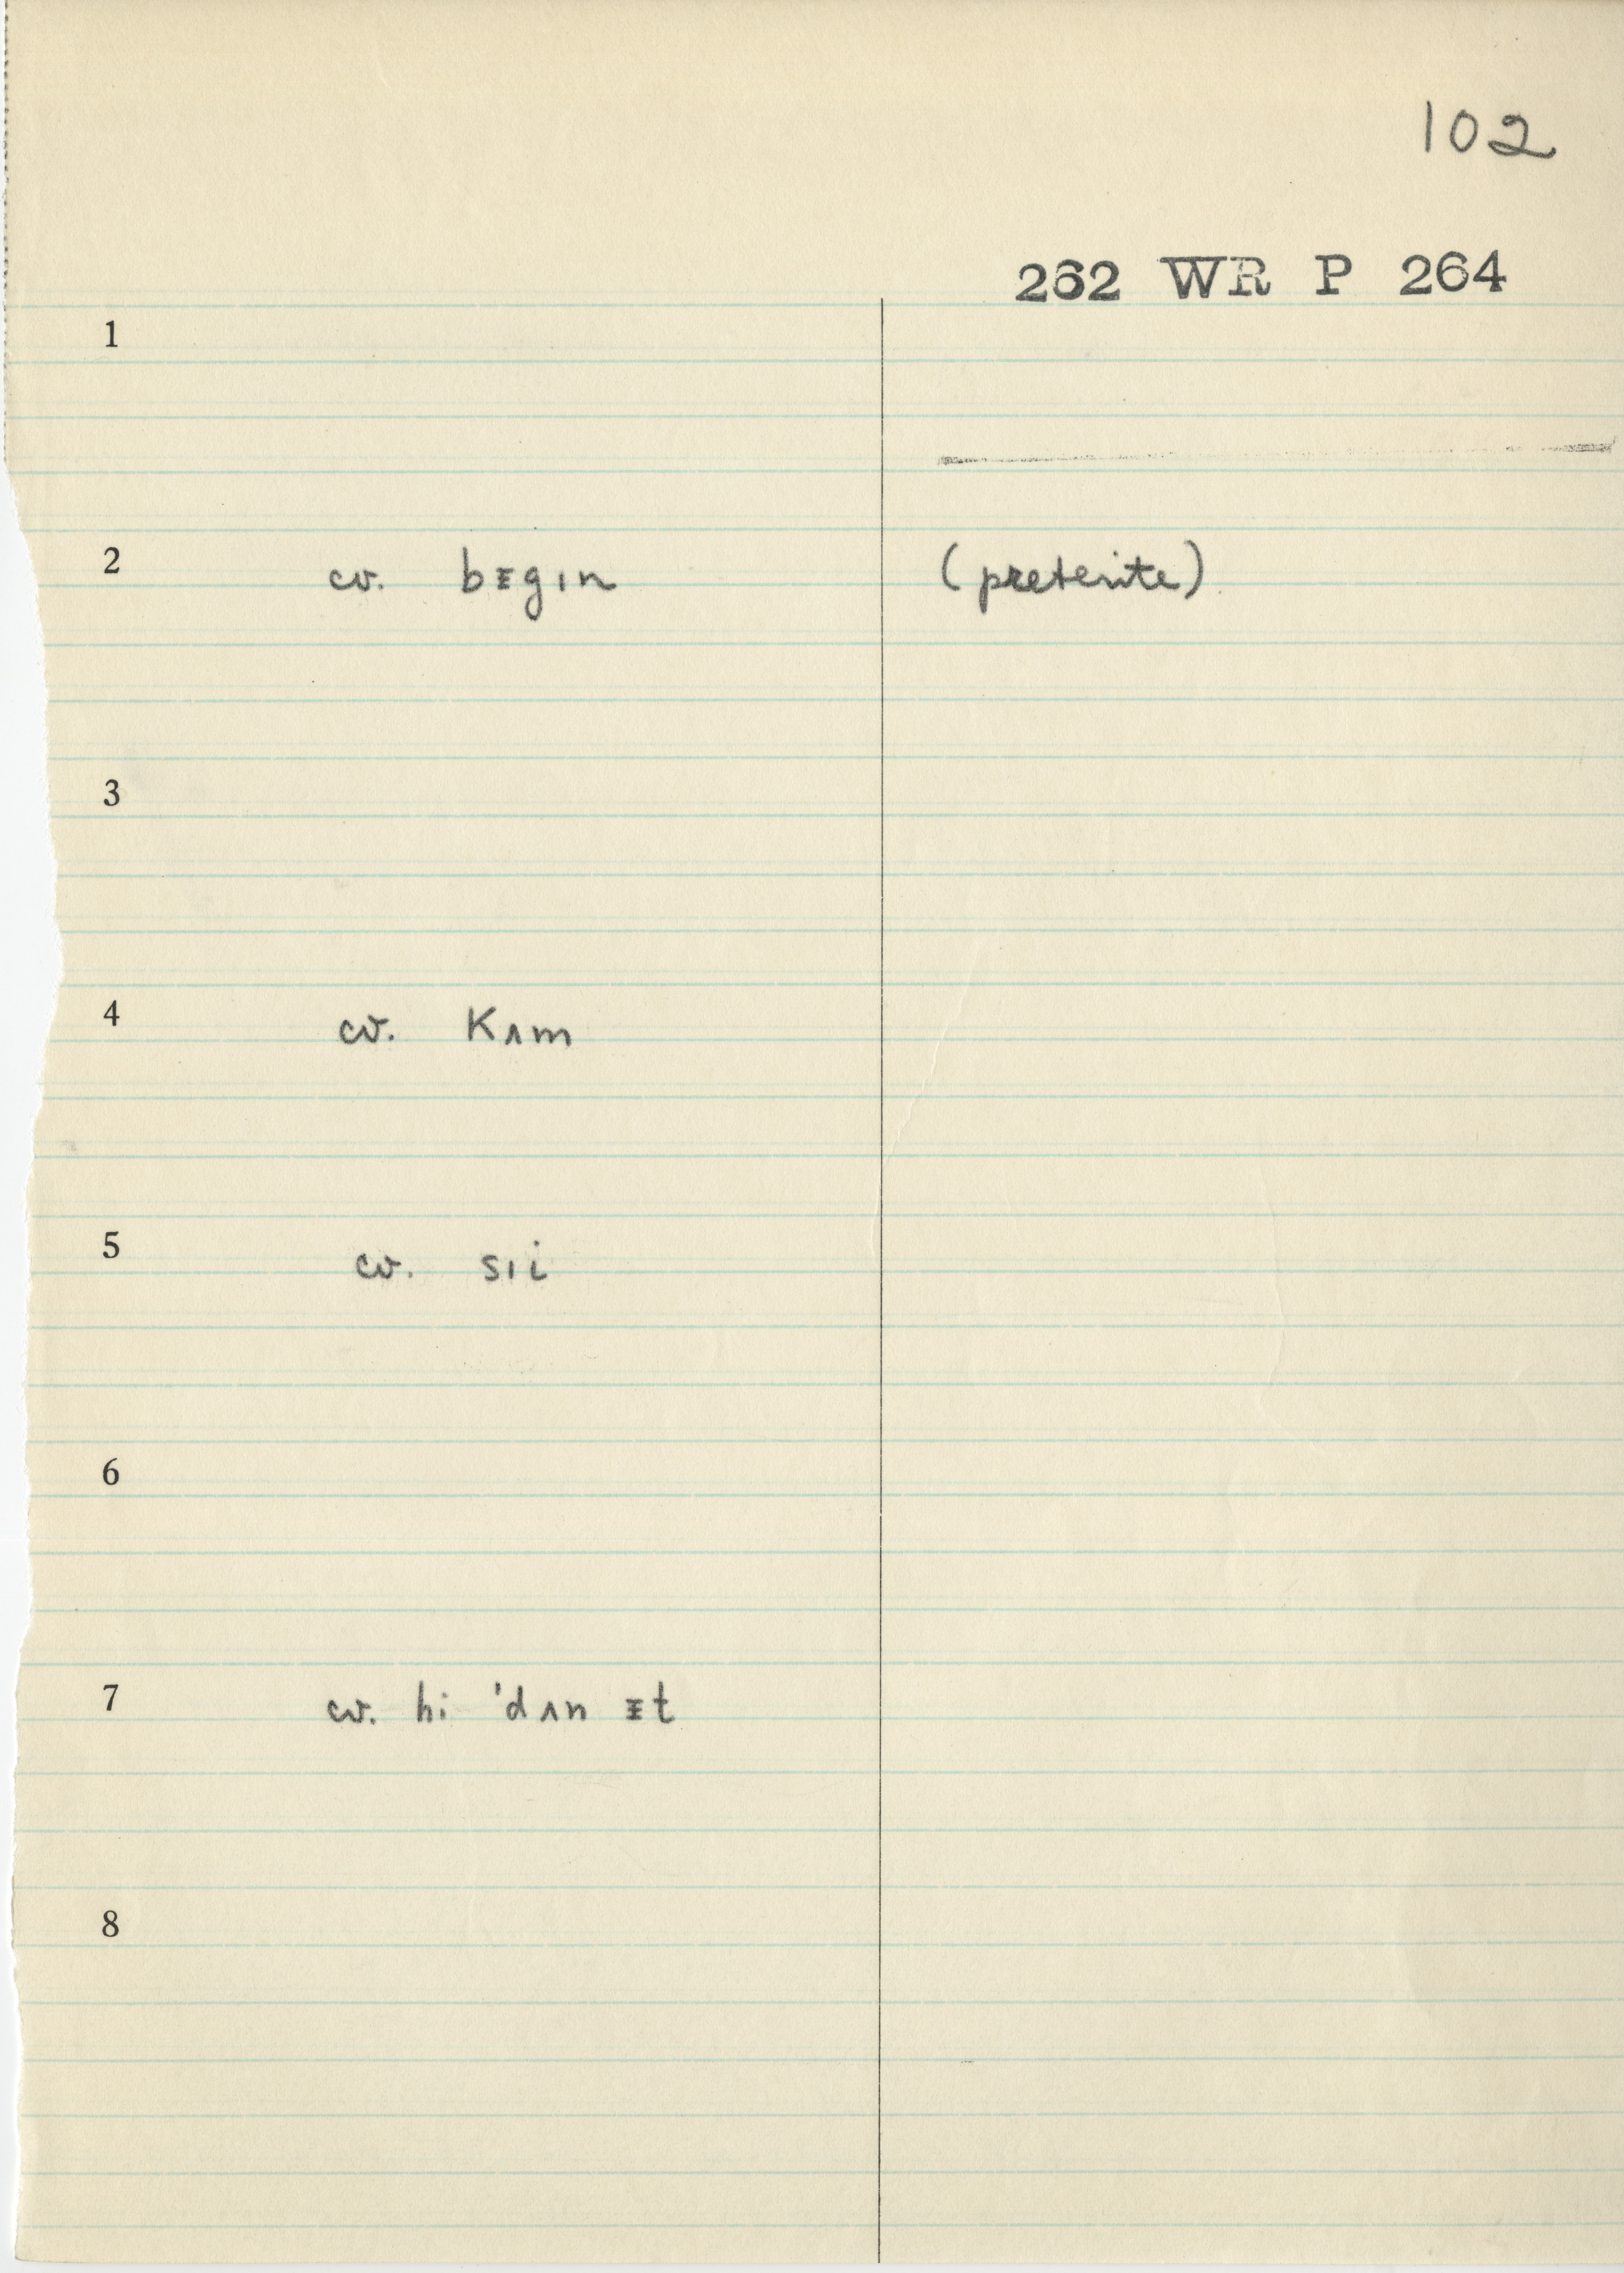 102
262 WR P 264
1
2 cv. bᵻgɪn (preterite)
3
4 cv. Kʌm
5 cv. sɪi
6
7 cv. hi 'dʌn ᵻt
8